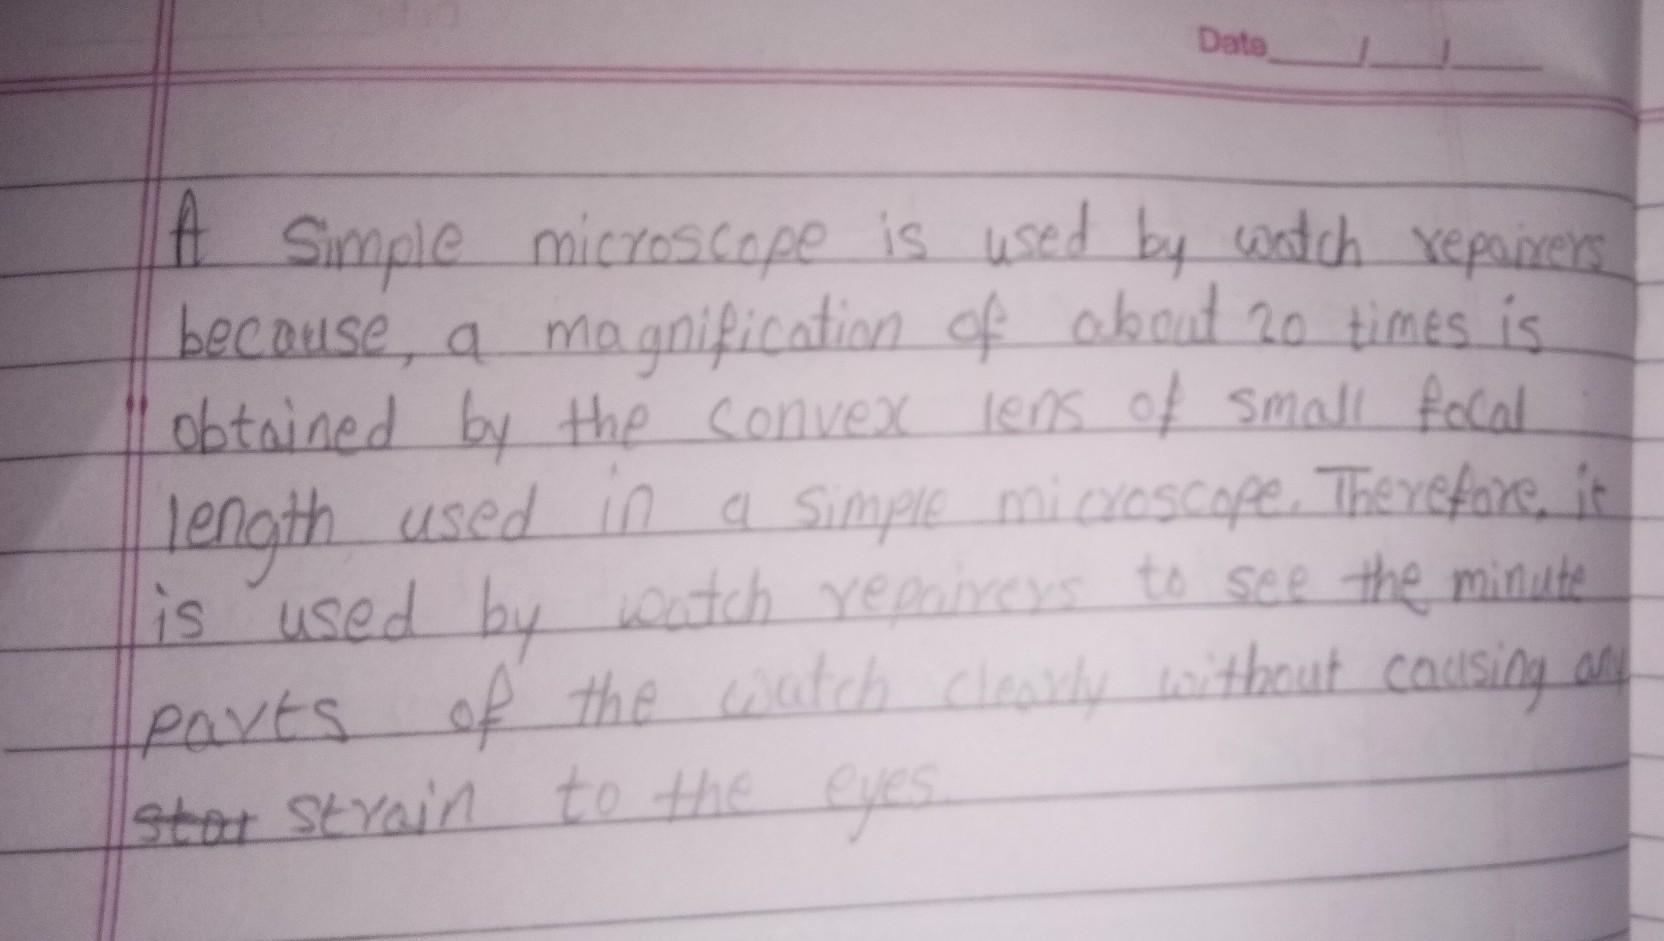 Date
A Simple microscope is used by watch repairers
because, a magnification of about 20 times is
obtained by the convex lens of small focal
length used in a simple microscope. Therefore, it
is used by watch repairers to see the minute
parts of the watch clearly without causing any
star strain to the eyes.